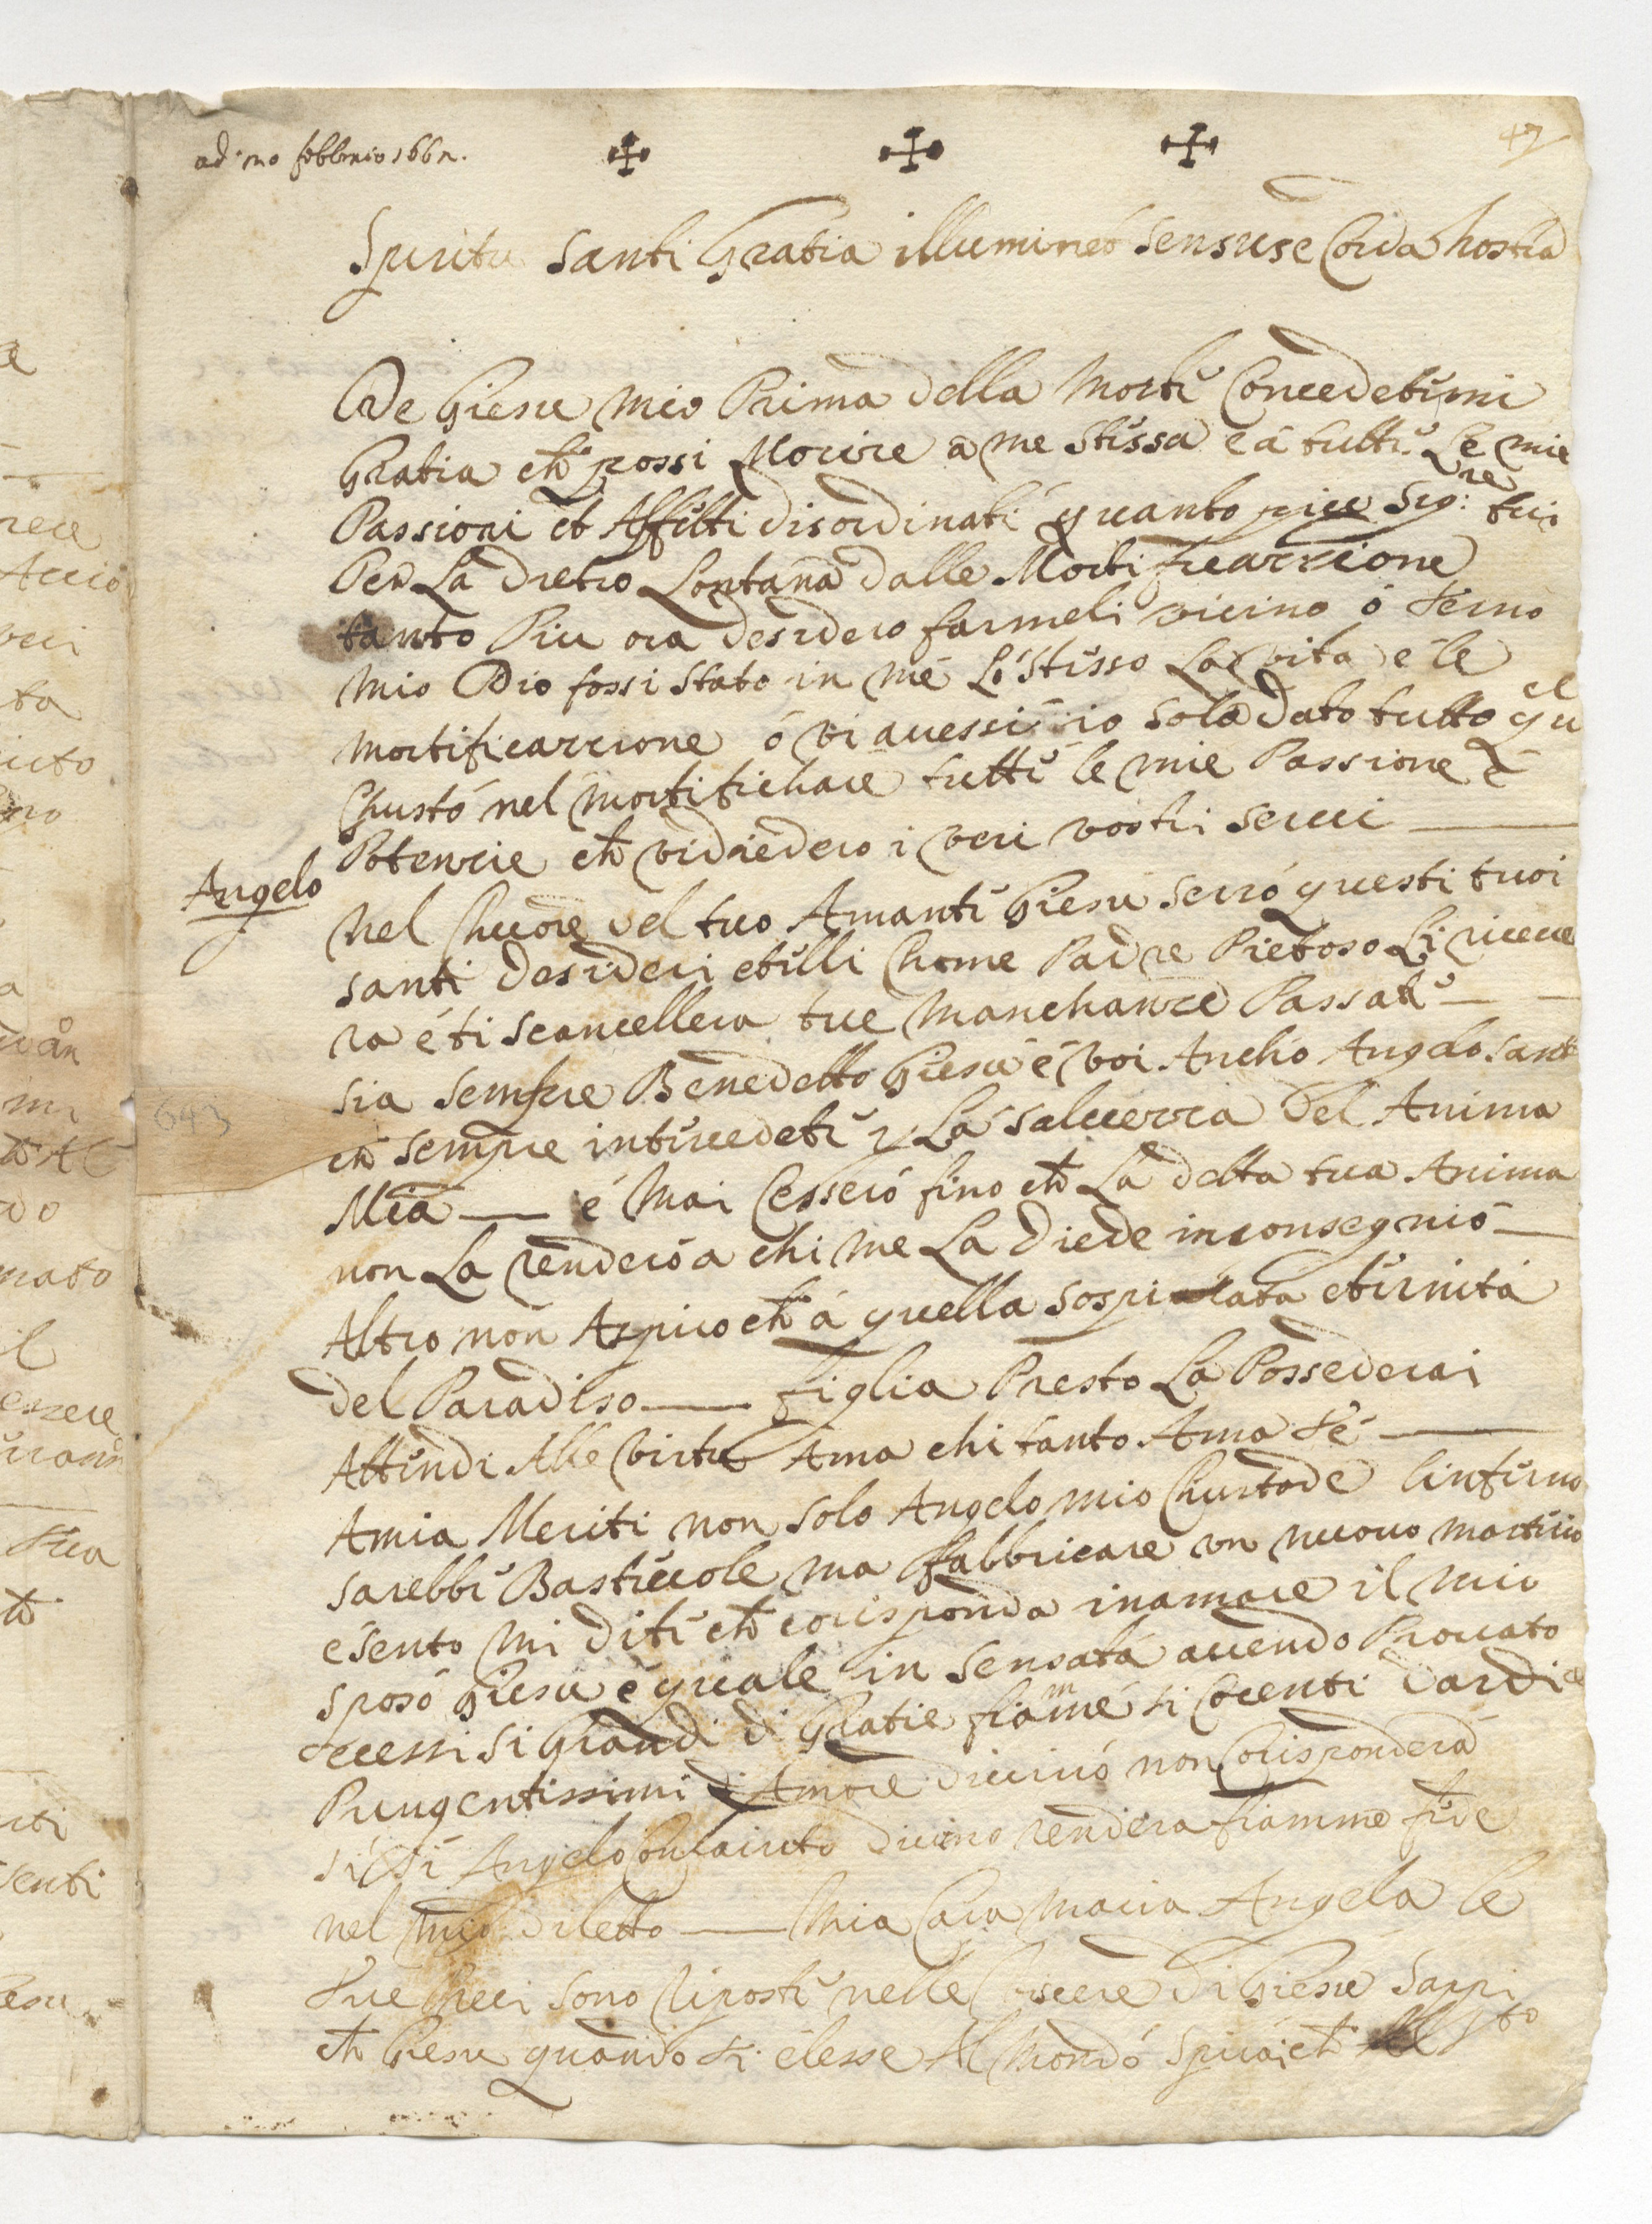 ad: mo febbraio 166
47
Spiritu Santi Gratia illumineó sensuse Corda nostra
De Giesu mio Prima della Morti Concedetimi
Gratia ch possi Morire a me stissa e á tutti Le mie
Passioni et Affitti disordinati quanto piu Sig:re fui
Per La dietro Lontana dalle Mortificazzione
tanto Piu ora desidero farmeli vicino ó terno
mio Dio fossi stato in me Lo stisso La vita e le
mortificazzione ó vi auessi io solo dato tutto quel
Ghusto nel mortifichare tutti le mie Passione e
Potenzie ch vidiedero i veri vostri serui
Angelo
nel Chuore del tuo Amanti Giesu serró questi tuoi
santi desideri etilli Chome Padre Pietoso Li riceue
ra é ti scancellera tue Manchanze Passati
sia sempre Benedetto Giesu é voi Ancho Angelo sant
ch sempre intircedeti p La saluezza del Anima
Mia é Mai Cesseró fino ch La detta tua Anima
non La renderó a chi me La diede inconsegnió
Altro non Aspiro ch á quella sospirata etirnitá
del Paradiso figlia Presto La Possederai
Attindi Alle virtu Ama chi tanto Ama té
Amia Meriti non solo Angelo mio Chustode linfirno
sarebbi Bastiuole ma fabbricare un nuouo martirio
e sento mi diti ch corisponda inamare il mio
sposó Giesu e quale in sensata auendo Prouato
eccessi si Grandi di Gratie fiamme si Cocenti dardi e
Pungentissimi di Amore diuinó non Corisponderá
si si Angelo Conlaiuto diuino rendera fiamme fide
nel mio diletto Mia Cara Maria Angela le
tue Preci sono Riposti nelle viscere di Giesu sappi
ch Giesu quando ti elesse Al Mondó